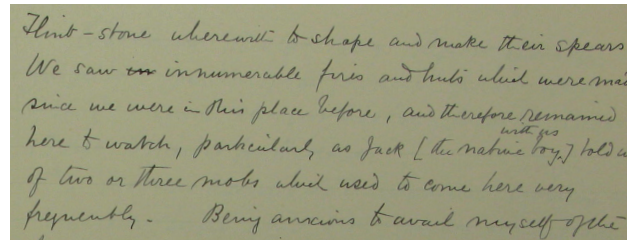 Flint-stone wherewith to shape and make their spears
We saw in innumerable fires and huts which were ma
since we were in this place before, and therefore remained
with us
here to watch, particularly as Jack [the native boy] told u
of two or three mobs which used to come here very
frequently. Being anxious to avail myself of the